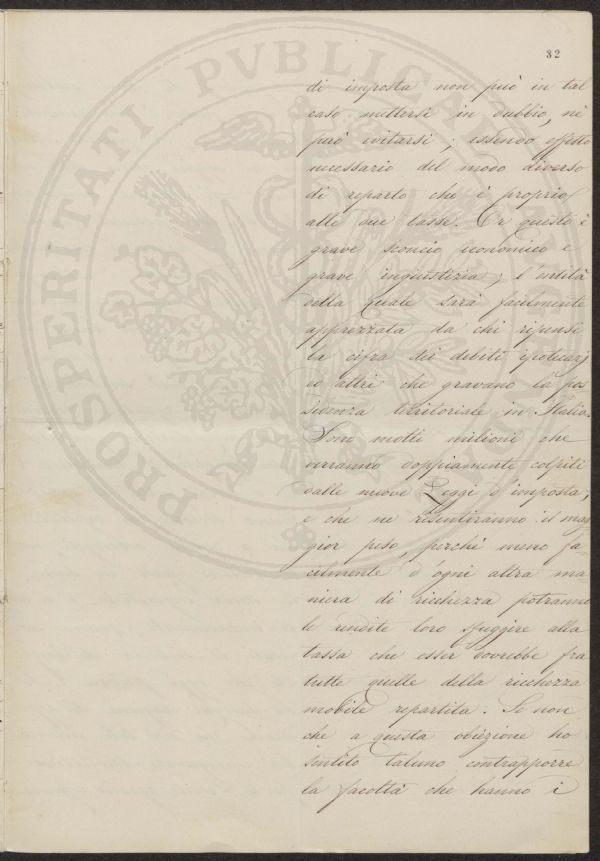 82
di imposta non può in tal
caso mettersi in dubbio, nè
può evitarsi; essendo effetto
necessario del modo diverso
di reparto che è proprio
alle due tasse. Or questo è
grave sconcio economico e
grave ingiustizia; l'entità
della quale sarà facilmente
apprezzata da chi ripensi
la cifra dei debiti ipotecarj
ed altri che gravano la pos
sidenza territoriale in Italia.
Sono molti milioni che
verranno doppiamente colpiti
dalle nuove Leggi d'imposta,
e che ne risentiranno il mag
gior peso, perchè meno fa
cilmente d'ogni altra ma
niera di ricchezza potranno
le rendite loro sfuggire alla
tassa che esser dovrebbe fra
tutte quelle della ricchezza
mobile repartita. Se non
che a questa obiezione ho
sentito taluno contrapporre
la facoltà che hanno i
PROSPERITATI PVBLICAE